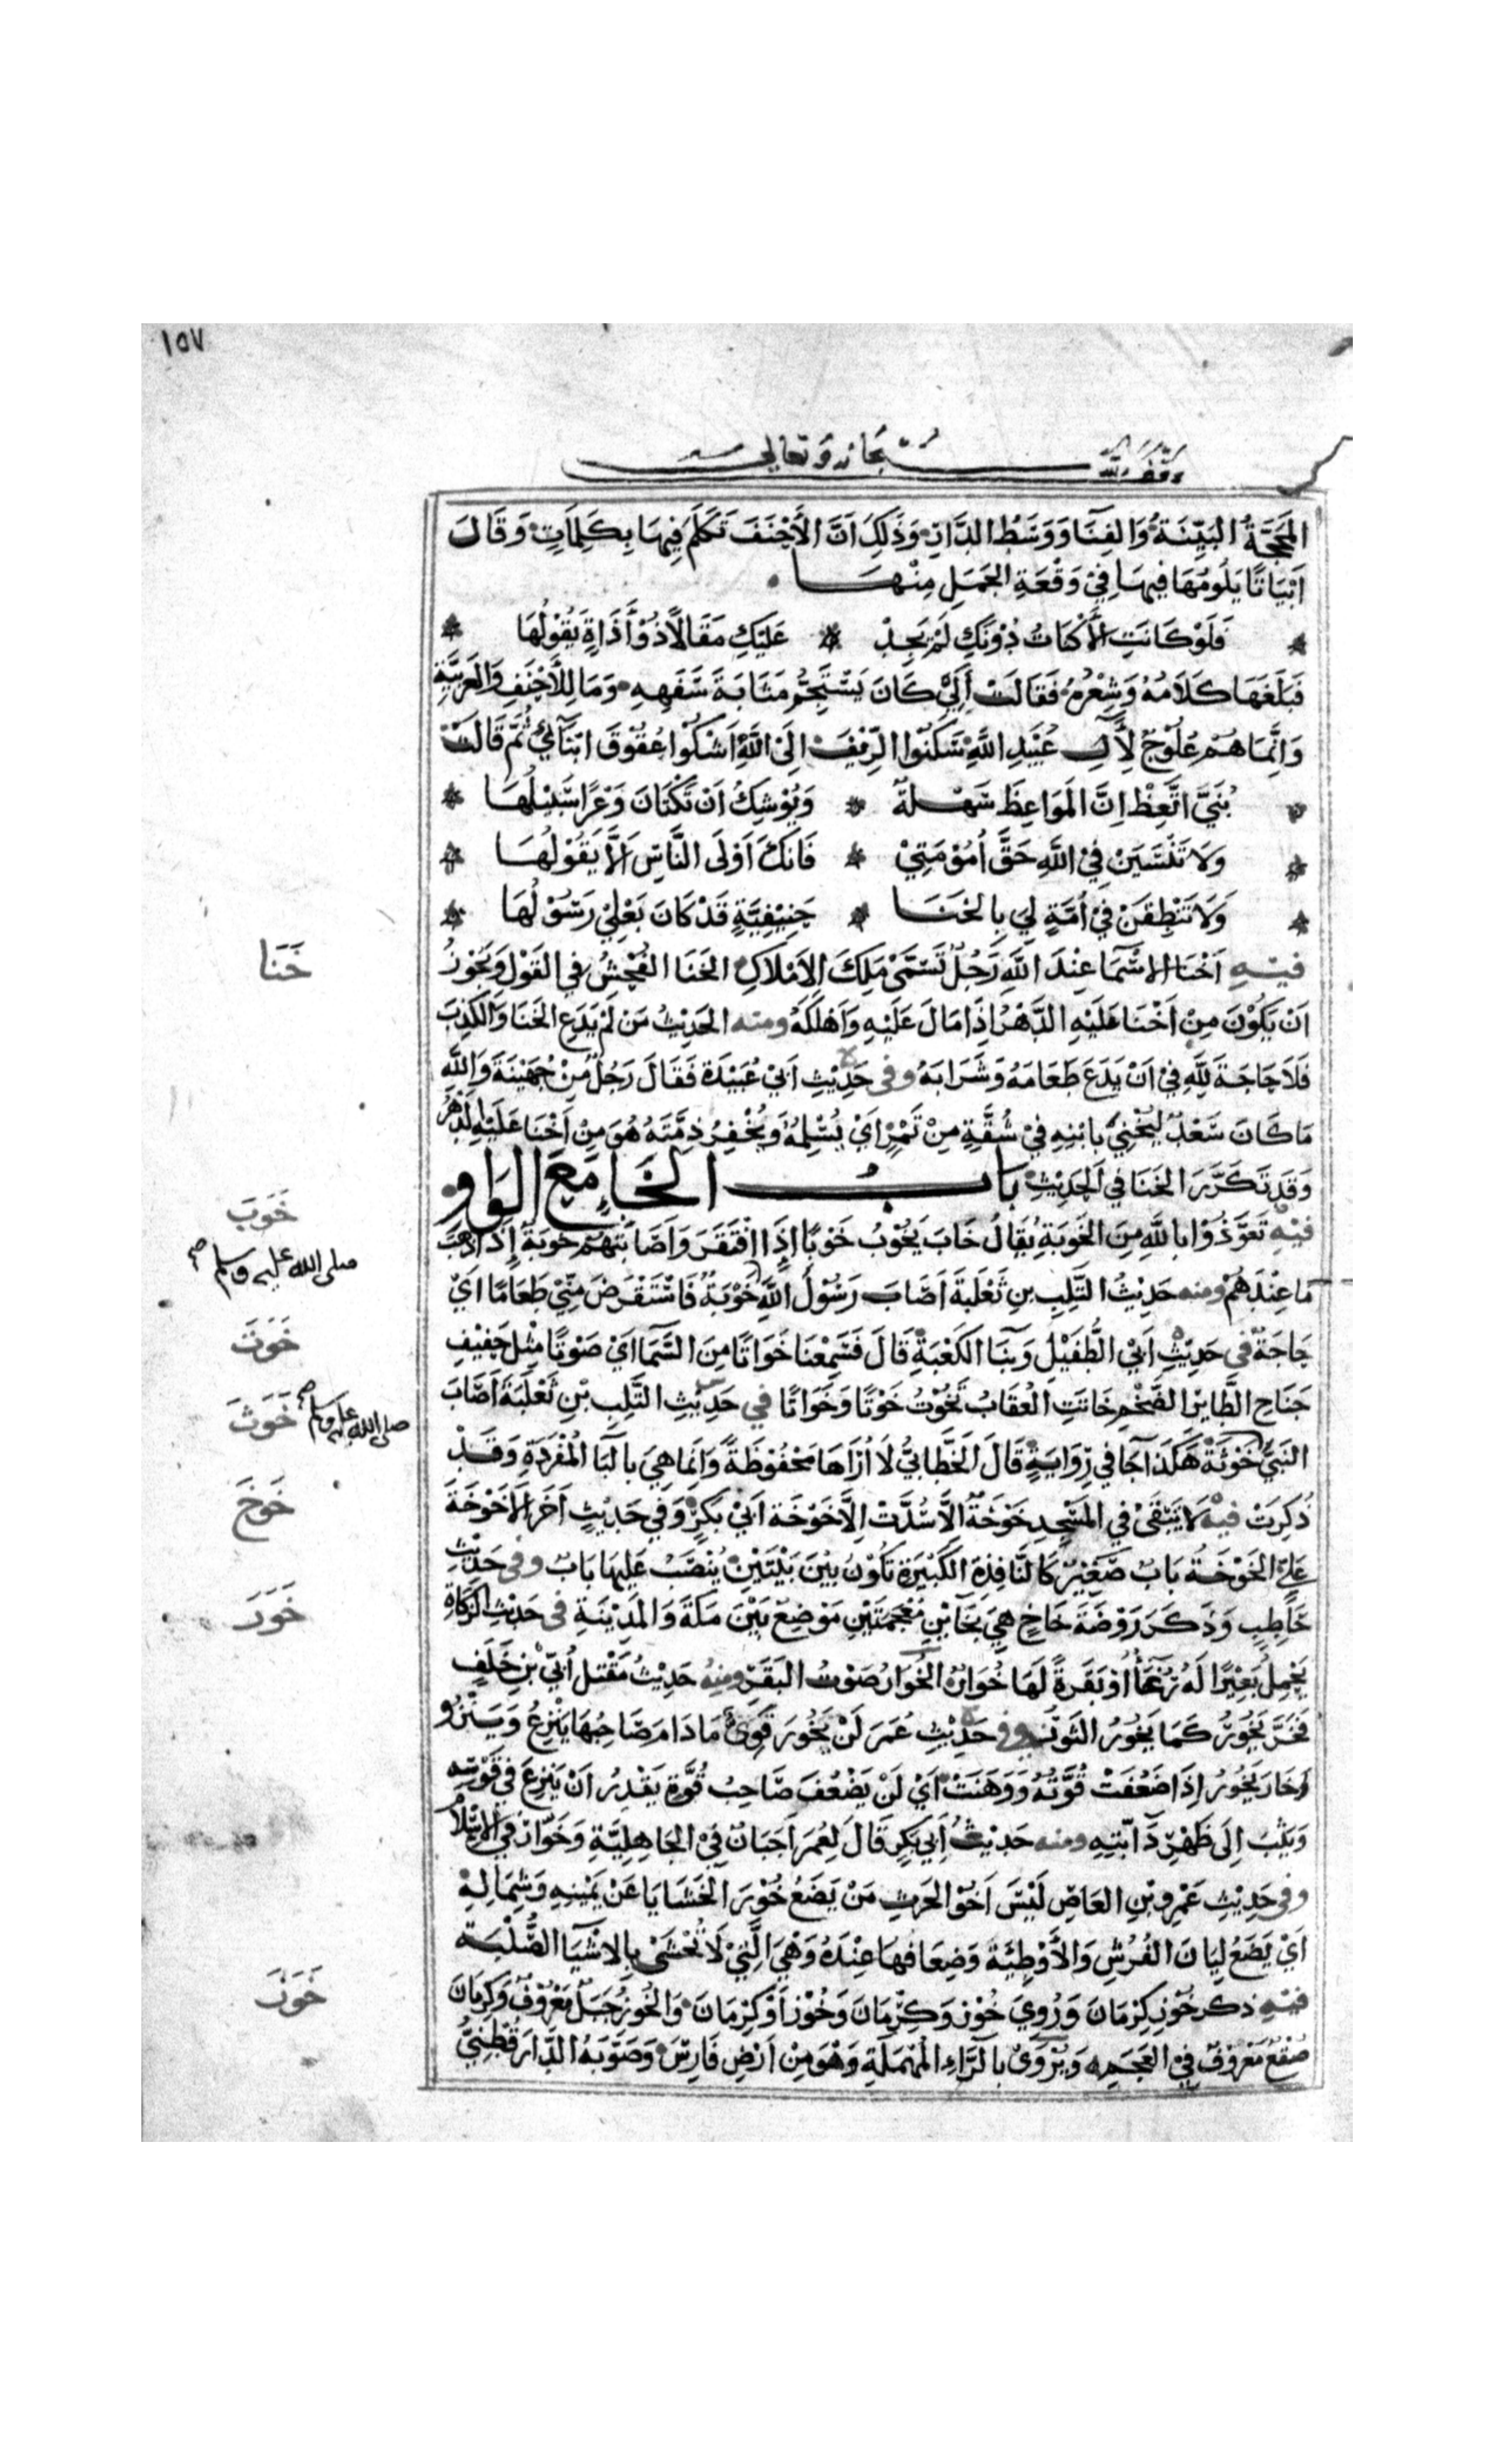 ١٥٧
وقف لله سبحانه وتعالى
المَحَجَّةُ البَيِّنَةُ وَالفِنَا وَوَسَطُ الدَّارِ وَذَلِكَ اَنَّ الأَحْنَفَ تَكَلَّمَ فِيهَا بِكَلِمَاتٍ وَقَالَ
اَبْيَاتًا يَلُومُهَا فِيهَا فِيْ وَقْعَةِ الجَمَلِ مِنْهَا
فَلَوْ كَانَتِ الأَكْنَانُ دُوْنَكِ لَمْ يَجِدْ * عَلَيْكِ مَقَالاً ذُوْ أَذَاةٍ يَقُوْلُهَا
فَبَلَغَهَا كَلَامُهُ وَشِعْرُهُ فَقَالَتْ اَلِيْ كَانَ يَسْتَجِمُّ مَثَابَةَ سَفَهِهِ وَمَا لِلأَحْنَفِ وَالعَرَبِيَّةِ
وَاِنَّمَا هُمْ عُلُوْجٌ لِأَلِ عُبَيْدِ اللهِ سَكَنُوا الرِّيْفَ اِلَىْ اللهِ اَشْكُوْا عُقُوْقَ ابْنَآئِيْ ثُمَّ قَالَتْ
بُنَيَّ اتَّعِظْ اِنَّ المَوَاعِظَ سَهْلَةٌ * وَيُوْشِكُ اَنْ تَكْتَانَ وَعْرًا سَبِيْلُهَا
وَلَا تَنْسَيَنْ فِيْ اللهِ حَقَّ أُمُوْمَتِيْ * فَاِنَّكَ اَوْلَى النَّاسِ اَلَّا يَقُوْلُهَا
وَلَا تَنْطِقَنْ فِيْ اُمَّةٍ لِيَ بِالخَنَا * حَنِيْفِيَّةٍ قَدْ كَانَ بَعْلِيْ رَسُوْلُهَا
خَنَا
فيه اَخْنَا الاسْمَآ عِنْدَ اللهِ رَجُلٌ تَسَمَّىْ مَلِكَ الاَمْلَاكِ الخَنَا الفُحْشُ فِي القَوْلِ وَيَجُوْزُ
اَنْ يَكُوْنَ مِنْ اَخْنَا عَلَيْهِ الدَّهْرُ اِذَا مَالَ عَلَيْهِ وَاَهْلَكَهُ ومنه الحَدِيْثُ مَنْ لَمْ يَدَعِ الخَنَا وَالكَذِبَ
فَلَا حَاجَةَ لِلّهِ فِيْ اَنْ يَدَعَ طَعَامَهُ وَشَرَابَهُ وفى حَدِيْثِ اَبِيْ عُبَيْدَةَ فَقَالَ رَجُلٌ مِنْ جُهَيْنَةَ وَاللهِ
مَا كَانَ سَعْدٌ لِيُخْنِيَ بِابْنِهِ فِيْ شُقَّةٍ مِنْ تَمْرٍ اَيْ يُسْلِمُهُ وَيُخْفِرُ ذِمَّتَهُ هُوَ مِنْ اَخْنَا عَلَيْهِ الدَّهْرُ
وَقَدْ تَكَرَّرَ الخَنَا فِي الحَدِيْثِ بَابُ الخَاءِ مَعَ الوَاوِ
خَوَبَ
فيه تَعَوَّذُوْا بِاللهِ مِنَ الخَوْبَةِ يُقَالُ خَابَ يَخُوْبُ خَوْبًا اِذَا افْتَقَرَ وَاَصَابَتْهُمْ خَوْبَةٌ اِذَا ذَهَبَ
صلى الله عليه وسلم صح
مَا عِنْدَهُمْ ومنه حَدِيْثُ التَّلِبِ بنِ ثَعْلَبَةَ اَصَابَ رَسُوْلَ اللهِ خَوْبَةٌ فَاسْتَقْرَضَ مِنِّيْ طَعَامًا اَيْ
خَوَتَ
حَاجَةٌ في حَدِيْثِ اَبِي الطُّفَيْلِ وَبِنَا الكَعْبَةِ قَالَ فَسَمِعْنَا خَوَاتًا مِنَ السَّمَآ اَيْ صَوْتًا مِثْلَ حَفِيْفِ
جَنَاحِ الطَّايِرِ الضَّخْمِ خَاتَتِ العُقَابُ تَخُوْتُ خَوْتًا وَخَوَاتًا في حَدِيْثِ التَّلِبِ بْنِ ثَعْلَبَةَ اَصَابَ
خَوَثَ صلى الله عليه وسلم صح
النَّبِيَّ خَوْثَةٌ هَكَذَا جَا فِي رِوَايَةٍ قَالَ الخَطَّابِيُّ لَا اُرَاهَا مَحْفُوْظَةً وَاِنَّمَا هِيَ بِالبَآ المُفْرَدَةِ وَقَدْ
خَوَخَ
ذُكِرَتْ فيه لَا يَبْقَىْ فِي المَسْجِدِ خَوْخَةٌ اِلَّا سُدَّتْ اِلَّا خَوْخَةَ اَبِيْ بَكْرٍ وَفِي حَدِيْثٍ اَخَرَ اِلَّا خَوْخَةَ
عَلِيٍّ الخَوْخَةُ بَابٌ صَغِيْرٌ كَالنَّافِذَةِ الكَبِيْرَةِ تَكُوْنُ بَيْنَ بَيْتَيْنِ يُنْصَبُ عَلَيْهَا بَابٌ وفى حَدِيْثِ
خَوَرَ
حَاطِبٍ وَذَكَرَ رَوْضَةَ خَاخٍ هِيَ بِخَايَيْنِ مُعْجَمَتَيْنِ مَوْضِعٌ بَيْنَ مَكَّةَ وَالمَدِيْنَةِ فى حَدِيْثِ الزَّكَاةِ
يَحْمِلُ بَعِيْرًا لَهُ رُغَآءٌ اَوْ بَقَرَةً لَهَا خُوَارٌ الخُوَارُ صَوْتُ البَقَرِ ومنه حَدِيْثُ مَقْتَلِ اُبَيِّ بْنِ خَلَفٍ
فَخَرَّ يَخُوْرُ كَمَا يَخُوْرُ الثَّوْرُ وفى حَدِيْثِ عُمَرَ لَنْ يَخُورَ قَوِيٌّ مَادَامَ صَاحِبُهَا يَنْزِعُ وَيَنْزُو
وَخَارَ يَخُوْرُ اِذَا ضَعُفَتْ قُوَّتُهُ وَوَهَنَتْ اَيْ لَنْ يَضْعُفَ صَاحِبُ قُوَّةٍ يَقْدِرُ اَنْ يَنْزِعَ فِي قَوْسِهِ
وَيَثْبَ اِلَى ظَهْرِ دَآبَّتِهِ ومنه حَدِيْثُ اَبِي بَكْرٍ قَالَ لِعُمَرَ اَجَبَانٌ فِيْ الجَاهِلِيَّةِ وَخَوَّارٌ فِي الاِسْلَامِ
وفى حَدِيْثِ عَمْرِو بْنِ العَاصِ لَيْسَ اَخُوْ الحَرْبِ مَنْ يَضَعُ خُوْرَ الحَشَايَا عَنْ يَمِيْنِهِ وَشِمَالِهِ
اَيْ يَضَعُ لِيَانَ الفُرُشِ وَالأَوْطِيَةِ وَضِعَافَهَا عِنْدَهُ وَهْيَ الَّتِيْ لَا تُحْشَىْ بِالاَشْيَآ الصُّلْبَةِ
خَوَزَ
فيه ذكر خُوْزِ كِرْمَانَ وَرُوِيَ خُوْزَ وَكِرْمَانَ وَخُوْزًا وَكِرْمَانَ وَالخُوْزُ جَبَلٌ مَعْرُوْفٌ وَكِرْمَانُ
صُقْعٌ مَعْرُوْفٌ فِيْ العَجَمِ وَيُرْوَىْ بِالرَّاءِ المُهْمَلَةِ وَهْوَ مِنْ اَرْضِ فَارِسَ وَصَوَّبَهُ الدَّارَقُطْنِيُّ